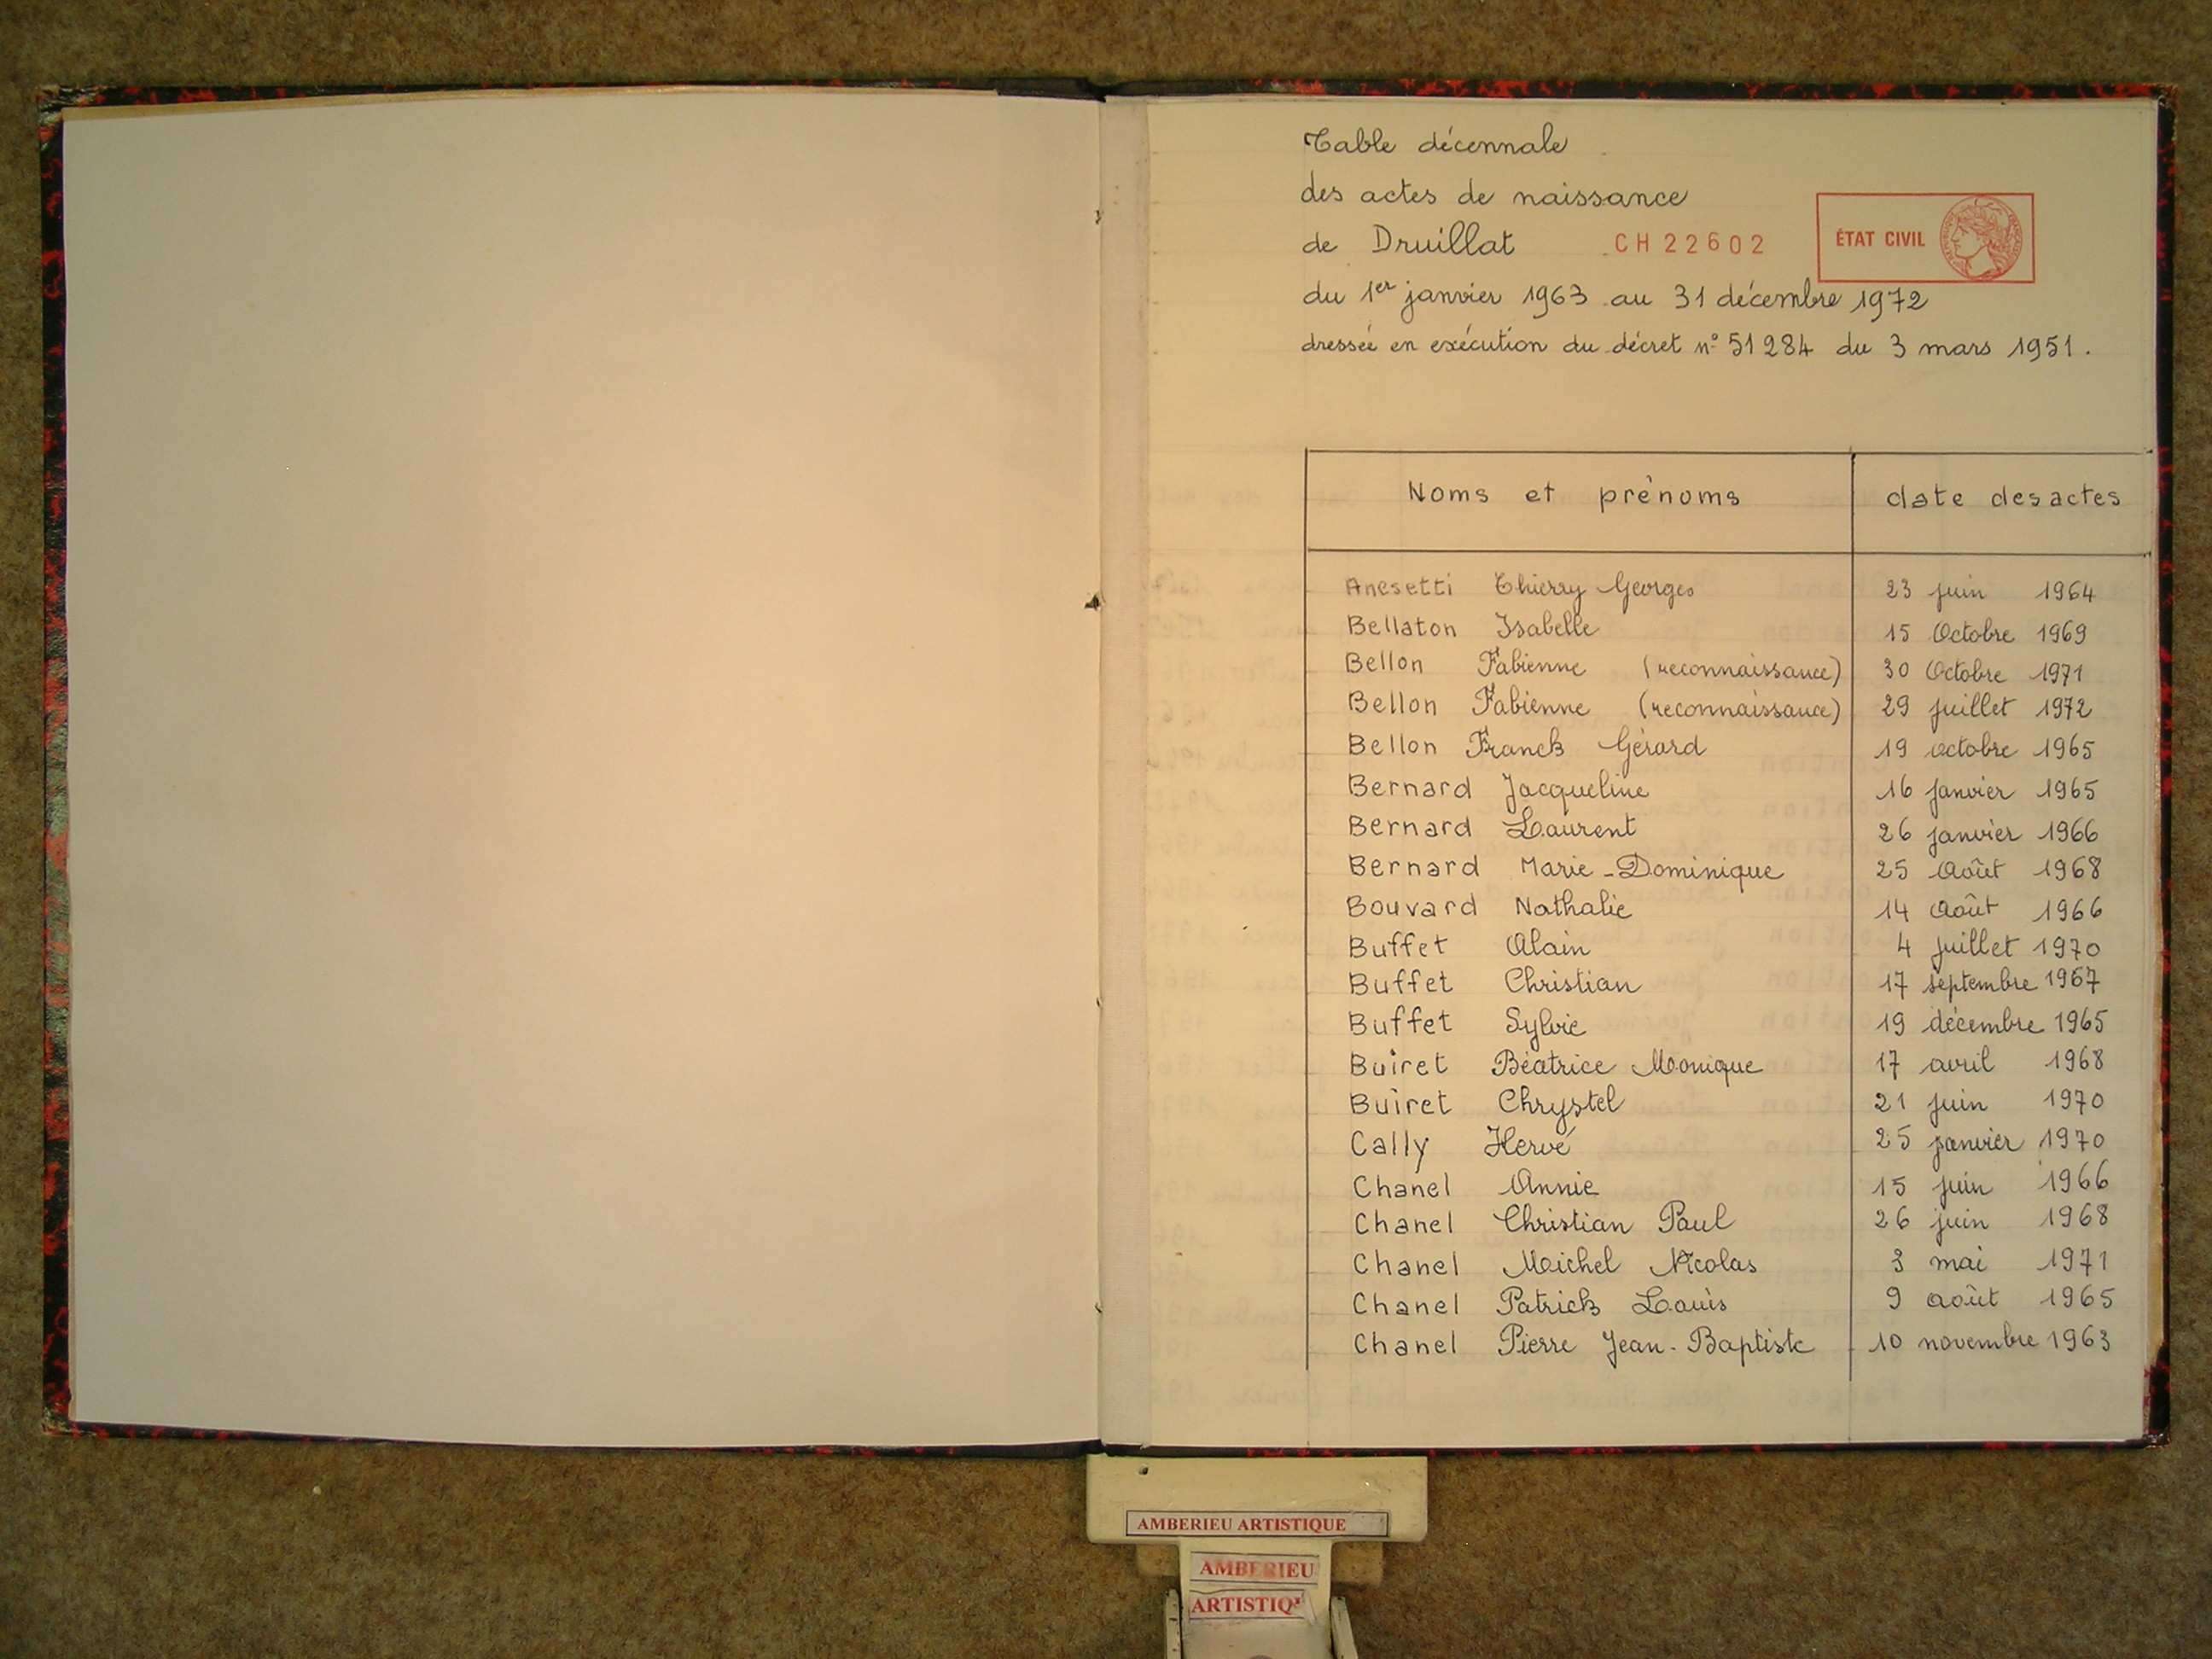 Table décennale
des actes de naissance
de Druillat CH 22602 ÉTAT CIVIL
du 1er janvier 1963 au 31 décembre 1972
dressée en exécution du décret n° 51 284 du 3 mars 1951.
Noms et prénoms date des actes
Anesetti Thierry Georges 23 juin 1964
Bellaton Isabelle 15 Octobre 1969
Bellon Fabienne (reconnaissance) 30 Octobre 1971
Bellon Fabienne (reconnaissance) 29 juillet 1972
Bellon Franck Gérard 19 octobre 1965
Bernard Jacqueline 16 janvier 1965
Bernard Laurent 26 janvier 1966
Bernard Marie-Dominique 25 Août 1968
Bouvard Nathalie 14 Août 1966
Buffet Alain 4 juillet 1970
Buffet Christian 17 septembre 1967
Buffet Sylvie 19 décembre 1965
Buiret Béatrice Monique 17 avril 1968
Buiret Chrystel 21 juin 1970
Cally Hervé 25 janvier 1970
Chanel Annie 15 juin 1966
Chanel Christian Paul 26 juin 1968
Chanel Michel Nicolas 3 mai 1971
Chanel Patrick Louis 9 août 1965
Chanel Pierre Jean-Baptiste 10 novembre 1963
AMBERIEU ARTISTIQUE
AMBERIEU
ARTISTIQ